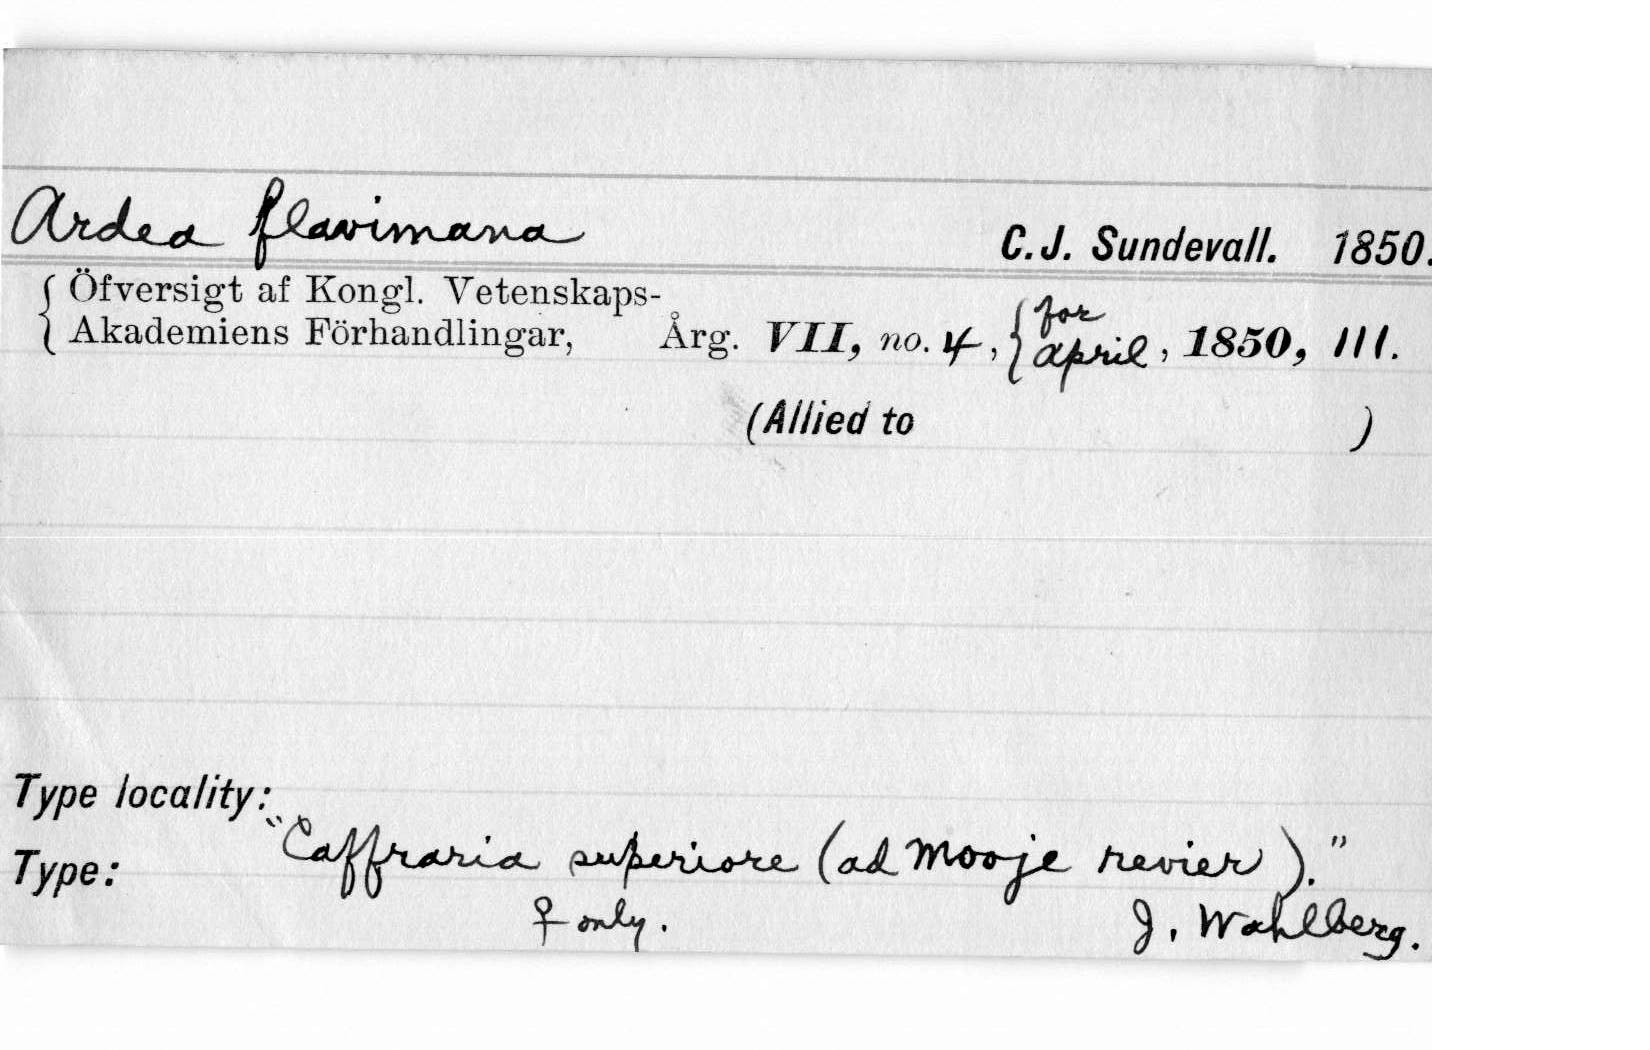 Ardea flavimana C.J. Sundevall. 1850.
Öfversigt af Kongl. Vetenskaps-
Akademiens Förhandlingar, Årg. VII, no. 4, { for april, 1850, 111.
(Allied to )
Type locality:
"Caffraria superiore (ad Mooje revier)."
Type:
♀ only. J. Wahlberg.